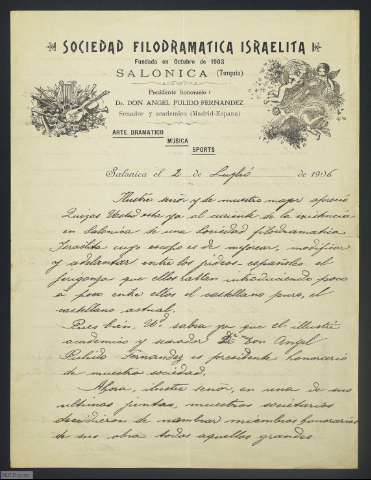 SOCIEDAD FILODRAMATICA ISRAELITA
Fundada en Octubre de 1903
SALONICA (Turquia)
Presidente honorario:
Dr. DON ANGEL PULIDO FERNANDEZ
Senador y academico (Madrid-Espana)
ARTE DRAMATICO
MUSICA
SPORTS
Salonica el 2 de Luglio de 1906
Ilustre señor y de nuestro mayor aprecio
Quizas Usted esta ya al corriente de la existencia
en Salonica de una Sociedad filodramatica
Israelita cuyo escopo es de mejorar, modificar
y adelantar entre los judeos españoles el
jerigonza que ellos hablan introduciendo poco
a poco entre ellos el castellano puro, el
castellano actual.
Pues bien, Ud. sabra ya que el illustre
academico y senador Dr. Don Angel
Pulido Fernandez es presidente honorario
de nuestra sociedad.
Ahora, ilustre señor, en una de sus
ultimas juntas, nuestros societarios
decidieron de nombrar miembros honorarios
de sus obra todos aquellos grandes